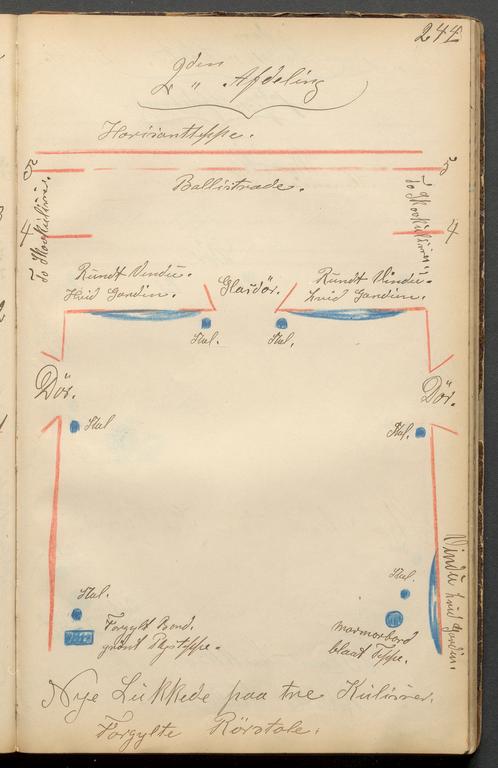 244
2den " Afdeling
Horisontteppe.
5 5
Ballistrade.
To Skovkulisser.
To Skovkulisser.
4 4
Rundt Vindu.
Hvid Gardin.
Glasdör.
Rundt Vindu.
hvid Gardin.
Stol. Stol.
Dör. Dör.
Stol Stol.
Vindu hvid Gardin.
Stol. Stol.
Forgylt Bord.
grönt Teppe.
marmorbord
blaat Teppe.
Nye Lukkede paa tre Kulisser.
Forgylte Rörstole.